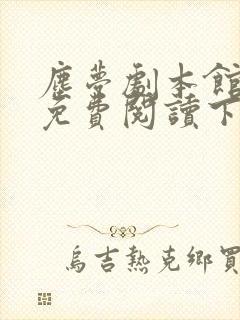 塵夢劇本館
免費閱讀下
烏吉熱克鄉買